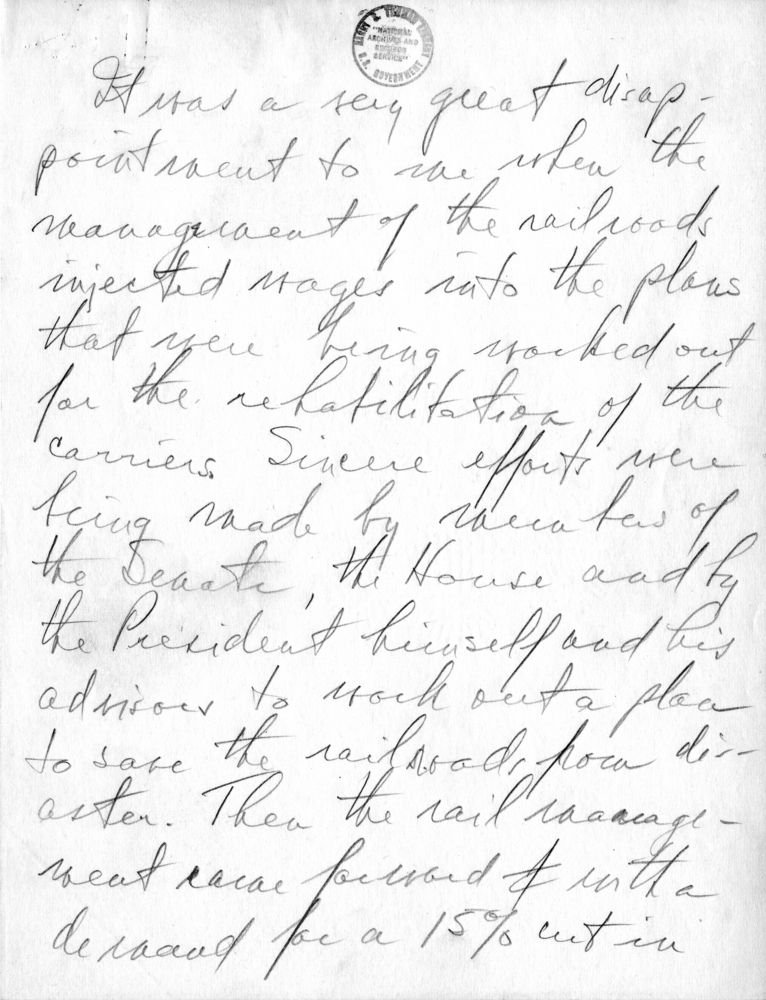 HARRY S. TRUMAN LIBRARY
"NATIONAL
ARCHIVES AND
RECORDS
SERVICE"
U.S. GOVERNMENT
It was a very great disap-
pointment to me when the
management of the railroads
injected wages into the plans
that were being worked out
for the rehabilitation of the
carriers. Sincere efforts were
being made by members of
the Senate, the House and by
the President himself and his
advisors to work out a plan
to save the railroads from dis-
aster. Then the rail manage-
ment came forward with a
demand for a 15% cut in